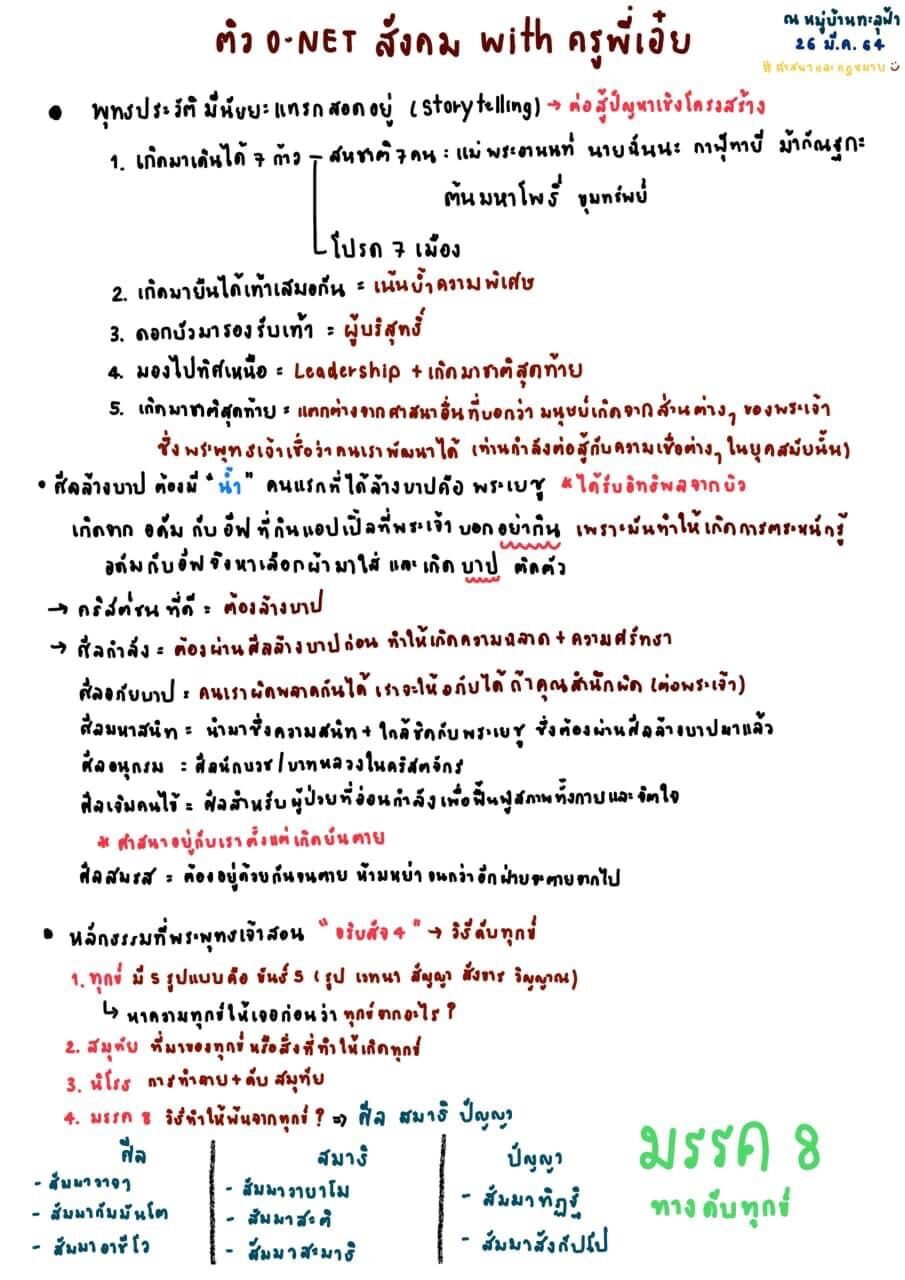 ติว O-NET สังคม with ครูพี่เอ๋ย
ณ หมู่บ้านทะลุฟ้า
26 มี.ค. 64
# ศาสนาและกฎหมาย
• พุทธประวัติ มีนัยยะแทรกสอดอยู่ (storytelling) → ต่อสู้ปัญหาเชิงโครงสร้าง
1. เกิดมาเดินได้ 7 ก้าว – สหชาติ 7 คน : แม่ พระอานนท์ นายฉันนะ กาฬุทายี ม้ากัณฐกะ
ต้นมหาโพธิ์ ขุมทรัพย์
โปรด 7 เมือง
2. เกิดมายืนได้เท้าเสมอกัน = เน้นย้ำความพิเศษ
3. ดอกบัวมารองรับเท้า = ผู้บริสุทธิ์
4. มองไปทิศเหนือ = Leadership + เกิดมาชาติสุดท้าย
5. เกิดมาชาติสุดท้าย = แตกต่างจากศาสนาอื่นที่บอกว่า มนุษย์เกิดจากส่วนต่างๆ ของพระเจ้า
ซึ่งพระพุทธเจ้าเชื่อว่าคนเราพัฒนาได้ (ท่านกำลังต่อสู้กับความเชื่อต่างๆ ในยุคสมัยนั้น)
• ศีลล้างบาป ต้องมี "น้ำ" คนแรกที่ได้ล้างบาปคือ พระเยซู * ได้รับอิทธิพลจากยิว
เกิดจาก อดัม กับ อีฟ ที่กินแอปเปิ้ลที่พระเจ้า บอกอย่ากิน เพราะมันทำให้เกิดการตระหนักรู้
อดัมกับอีฟจึงหาเลือกผ้ามาใส่ และเกิด บาป ติดตัว
→ คริสต์ชน ที่ดี = ต้องล้างบาป
→ ศีลกำลัง = ต้องผ่านศีลล้างบาปก่อน ทำให้เกิดความฉลาด + ความศรัทธา
ศีลอภัยบาป = คนเราผิดพลาดกันได้ เราจะให้อภัยได้ ถ้าคุณสำนึกผิด (ต่อพระเจ้า)
ศีลมหาสนิท = นำมาซึ่งความสนิท + ใกล้ชิดกับพระเยซู ซึ่งต้องผ่านศีลล้างบาปมาแล้ว
ศีลอนุกรม : ศีลนักบวช / บาทหลวงในคริสตจักร
ศีลเจิมคนไข้ = ศีลสำหรับผู้ป่วยที่อ่อนกำลังเพื่อฟื้นฟูสภาพทั้งกายและจิตใจ
* ศาสนาอยู่กับเราตั้งแต่เกิดยันตาย
ศีลสมรส = ต้องอยู่ด้วยกันจนตาย ห้ามหย่า จนกว่าอีกฝ่ายจะตายจากไป
• หลักธรรมที่พระพุทธเจ้าสอน "อริยสัจ 4" → วิธีดับทุกข์
1. ทุกข์ มี 5 รูปแบบคือ ขันธ์ 5 (รูป เวทนา สัญญา สังขาร วิญญาณ)
↳ หาความทุกข์ให้เจอก่อนว่า ทุกข์จากอะไร ?
2. สมุทัย ที่มาของทุกข์ หรือสิ่งที่ทำให้เกิดทุกข์
3. นิโรธ การทำตาย + ดับ สมุทัย
4. มรรค 8 วิธีทำให้พ้นจากทุกข์ ? ⇒ ศีล สมาธิ ปัญญา
ศีล
- สัมมาวาจา
- สัมมากัมมันโต
- สัมมาอาชีโว
สมาธิ
- สัมมาวายาโม
- สัมมาสะติ
- สัมมาสะมาธิ
ปัญญา
- สัมมาทิฏฐิ
- สัมมาสังกัปโป
มรรค 8
ทางดับทุกข์